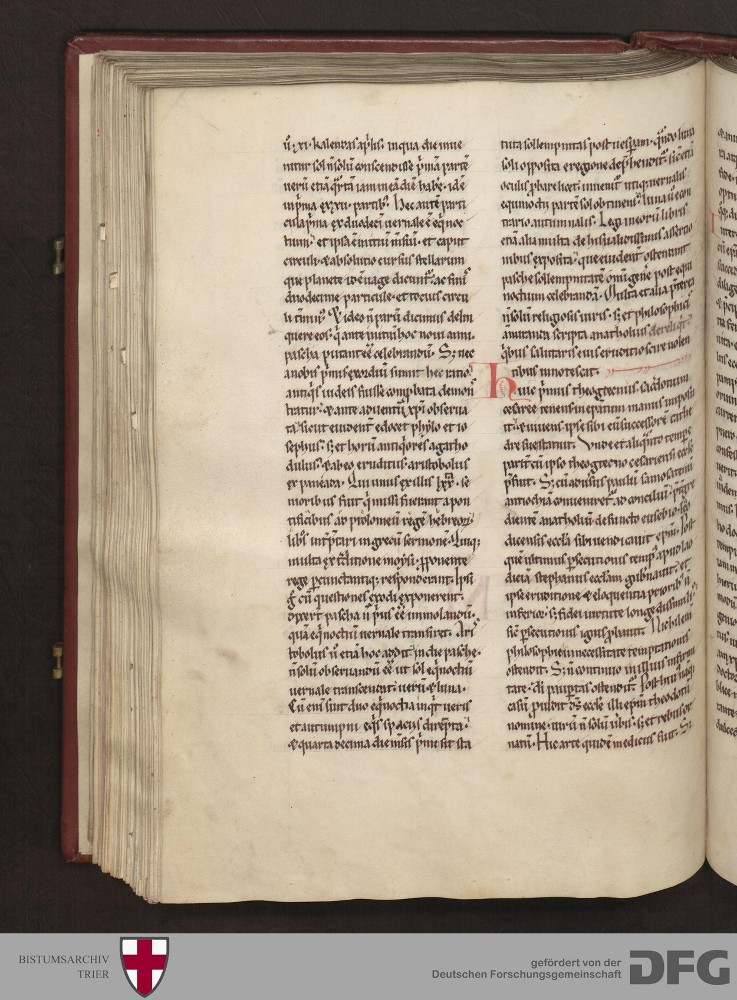 ū. xi. kalendas aplis. in qua die inue
nitur sol n̄ solū conscendisse p̄mā partē
uerū etiā q̄rtā iam in ea die habe. idē
in p̄ma ex xii. partib;. Hec autē parti
cula p̄ma ex duodeci uernale ē eq̄noc
tium. et ipsa ē initiū m̄siū. et caput
circuli. & absolutio cursus stellarum
que planete id ē uage dicunt̄. ac finis
duodecime particule. et tocius circu
li t̄minus. Et ideo n̄ parū dicimus delin
quere eos. q̄ ante initiū hoc noui anni.
pascha putant eē celebrandū. S; nec
a nobis p̄mū exordiū sumit hec ratio.
antiq̄s iudeis fuisse comp̄bata demon
stratur. & ante aduentū xpi obserua
ta. sicut euident̄ edocet phylo et io
sephus. s; et horū antiq̄ores agatho
bulus. & ab eo eruditus aristobolus
ex paneada. Qui unus ex illis lxx. se
nioribus fuit q̄ missi fuerant a pon
tificibus ad ptolomeū regē hebreor̄
libros int̄ptari in grecū sermonē. Quiq;
multa ex t̄ditione moysi. p̄ponente
rege percunctantiq; responderunt. Ipsi
g̊ cū questiones exodi exponerent.
dixert pascha n̄ prius eē immolandū.
quā eq̄noctiū uernale transiret. Aris
tobolus ū etiā hoc addit. in die pasche.
n̄ solū obseruandū eē ut sol eq̄noctiū
uernale transcendat. uerū & luna.
Cū em̄ sint duo eq̄noctia inq̄t ueris
et autumpni eq̄s spaciis dirēpta.
& quarta decima die m̄sis p̄mi sit sta
tuta sollempnitas post uesp̄am. q̄ndo luna
soli opposita e regione dep̄hendit̄. sic̄ etiā
oculis p̄bare licet. inuenit̄ utiq; uernalis
equinoctii partē sol obtinens. luna ū e con
trario autumnalis. Legi in eorū libris
etiā alia multa de his ualidissimis assertio
nibus exposita. que euident̄ ostendunt
pasche sollempnitatē om̄i genere post equi
noctium celebrandā. Multa et alia p̄terea
n̄ solū religiosis uiris. s; et philosophis
āmiranda scripta anatholius dereliq̄t
q̄bus salutaris eius eruditio scire uolen
tibus innotescat.
Huic p̄mus theogtecnus sac̄dotum
cesaree tenens in ep̄atum manus imposu
it. & uiuens ipse sibi eū successorē cathe
dre sue statuit. Unde et aliq̄nto tempe
parit̄ cū ipso theogtecno cesariensi eccłe
p̄fuit. S; cū aduersus paulū samosatenū
antiochiā conueniret̄ ad conciliū. p̄t̄gre
dientē anatholiū. defuncto eusebio. lao
dicensis ecclā sibi uendicauit ep̄m. Post
quē ultimus p̄secutionis tempus apud lao
diciā stephanus ecclam gub̄nauit. et
ipse eruditione & eloquentia prioribus n̄
inferior. s; fidei uirtute longe dissimilis.
sic̄ p̄secutionis ignis p̄bauit. Nichil em̄
philosophie in necessitate temptationis
ostendit. S; n̄ continuo in illius infirmi
tate. di pauptas ostendit̄. Post hui; naq;
casū. p̄uidit ds̄ eccłe illi ep̄m theodotū
nomine. uirū n̄ solū uerbis. s; et rebus or
natū. Hic arte quidē medicus fuit. S;
BISTUMSARCHIV
TRIER
gefördert von der
Deutschen Forschungsgemeinschaft
DFG